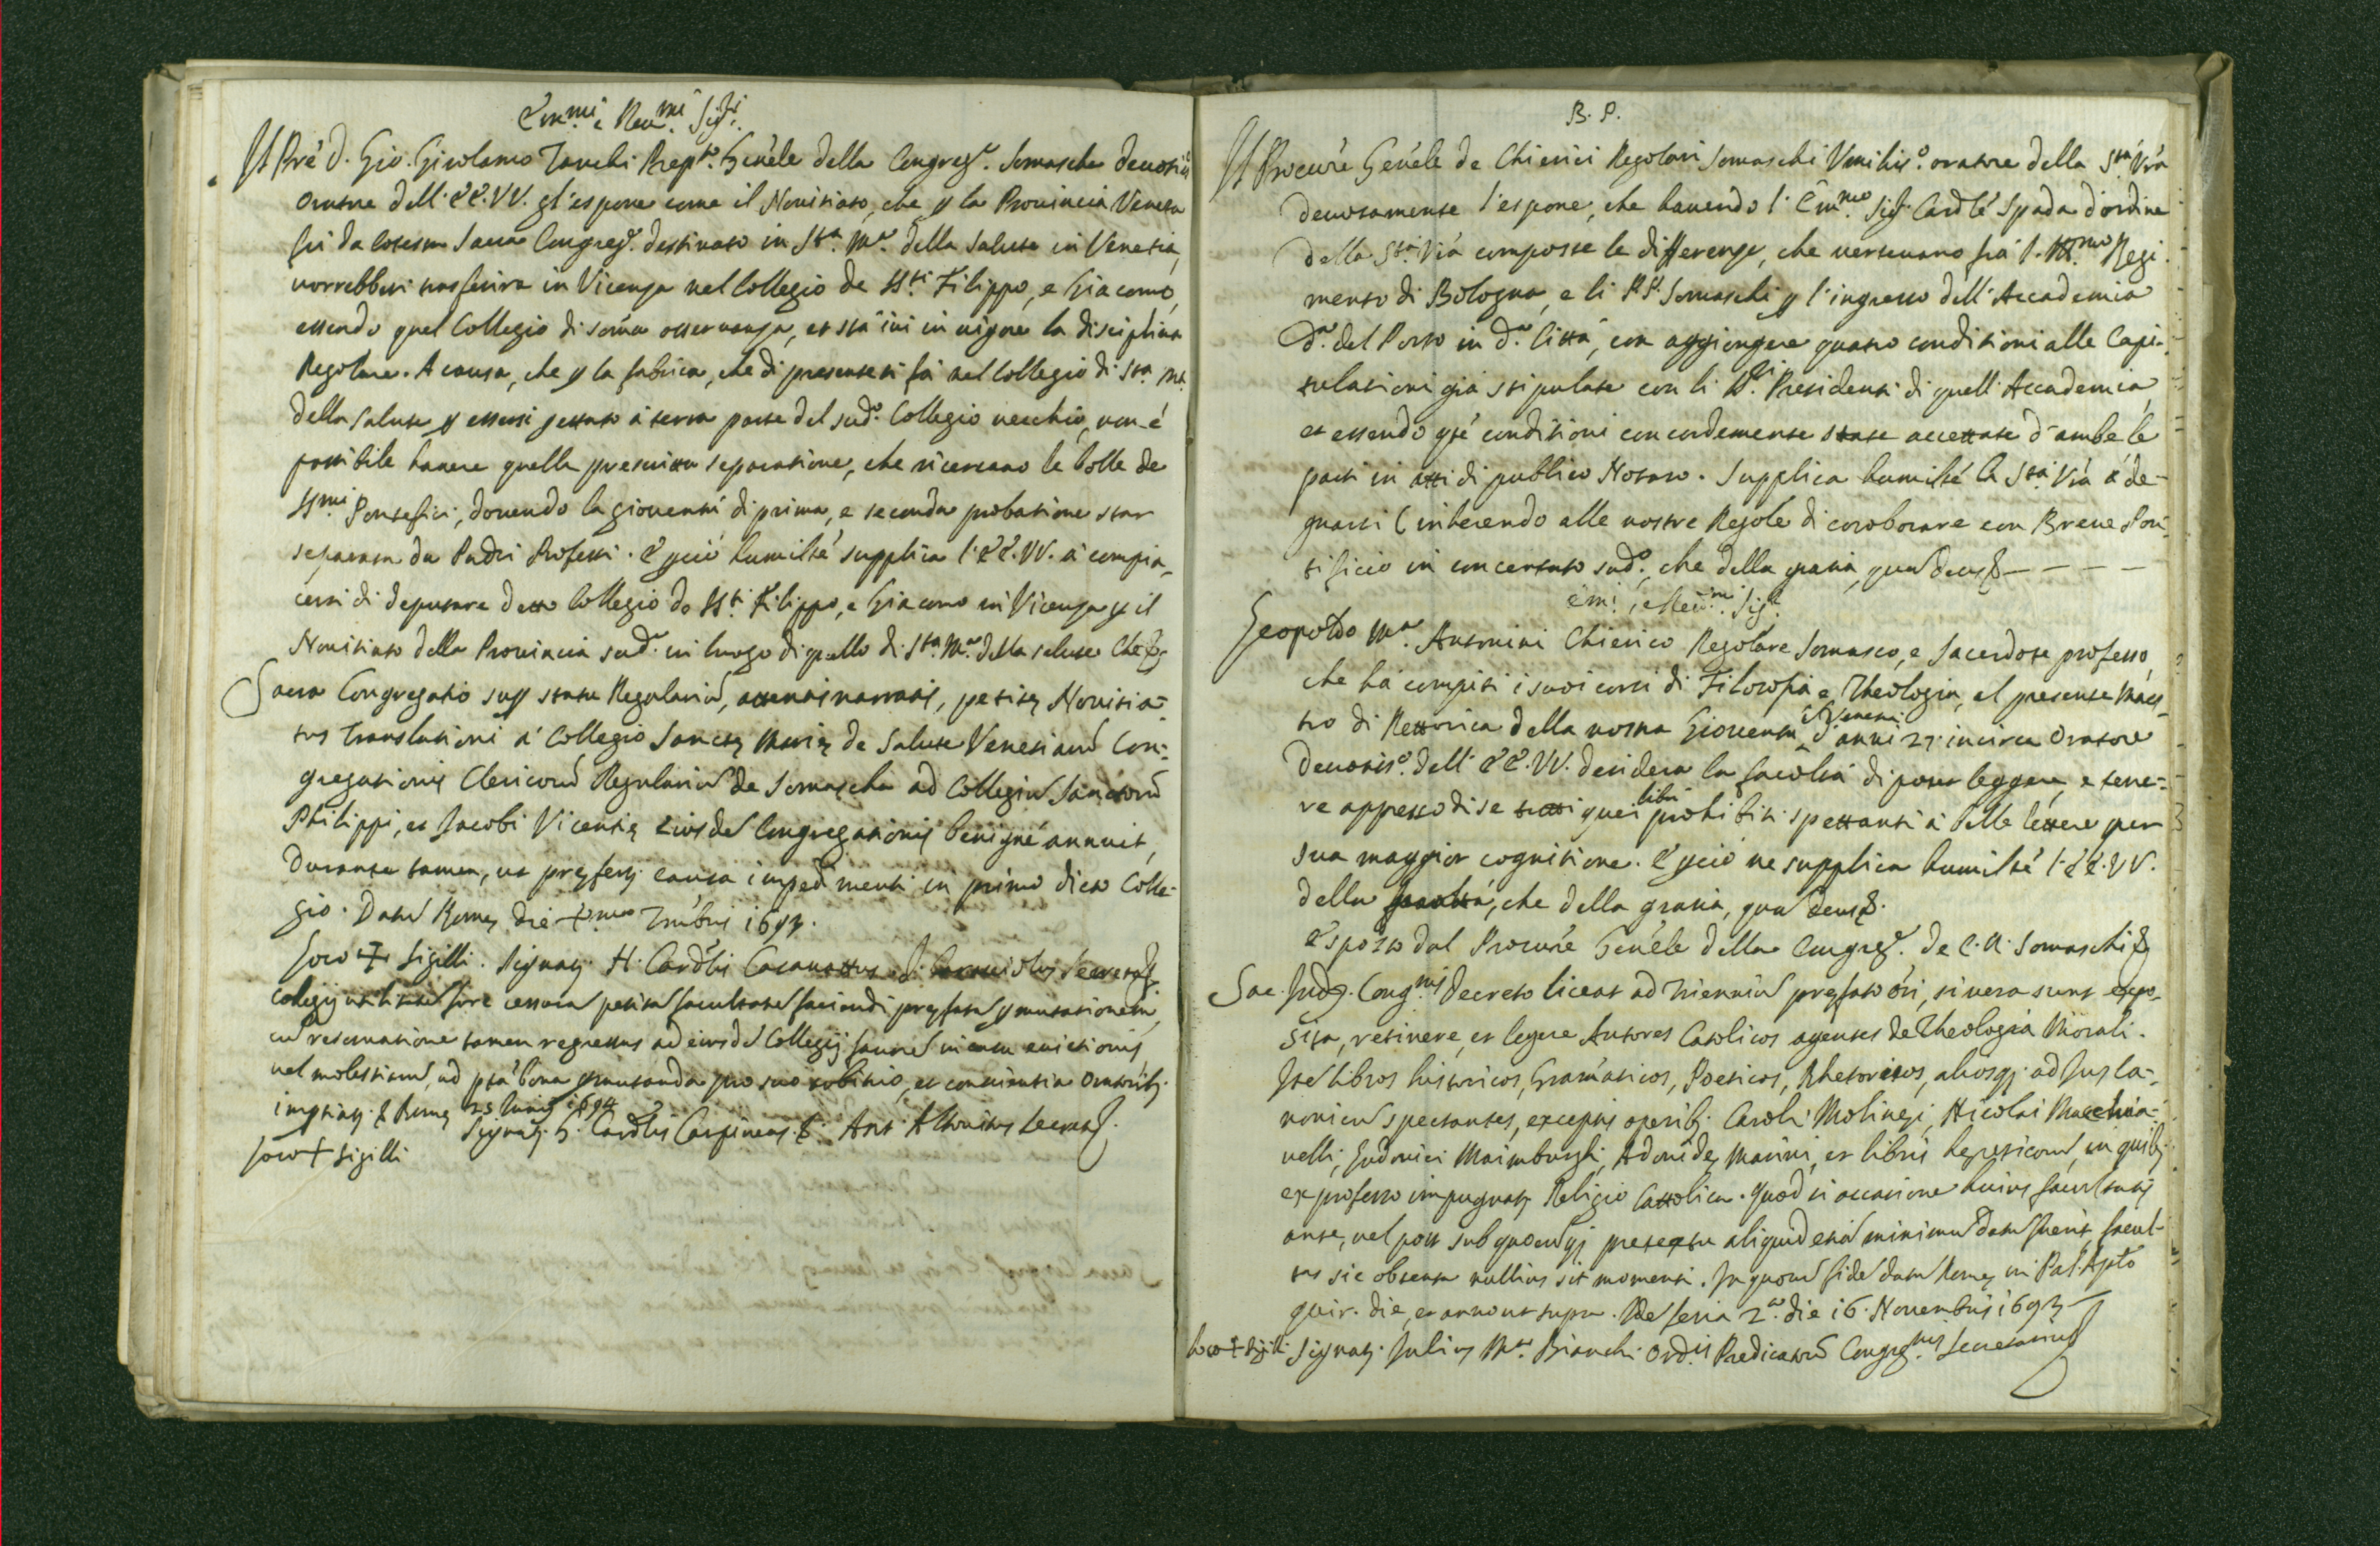 Em.mi e Reu.mi Sig.ri
Il Pre D. Gio. Girolamo Zanchi Prep.to Gen'ele della Congreg.e Somascha deuotis.o
Oratore dell' EE. VV. gl' espone come il Nouitiato, che p la Prouincia Veneta
fù da cotesta Sacra Congreg.e destinato in S.ta M.a della Salute in Venetia,
uorrebbesi trasferire in Vicenza nel Collegio de SS.ti Filippo, e Giacomo,
essendo quel Collegio di som̃a osseruanza, et stà iui in uigore la disciplina
Regolare. A causa, che p la fabrica, che di presente si fà nel Collegio di S.ta M.a
della Salute p essersi gettato à terra parte del sud.o Collegio uecchio, non è
possibile hauere quella prescritta separatione, che ricercano le bolle de
SS.mi Pontefici, douendo la giouentù di prima, e seconda probatione star
separata da Padri Professi. E pciò humilte' supplica l' EE. VV. à compia-
cersi di deputare detto Collegio de SS.ti Filippo, e Giacomo in Vicenza p il
Nouitiato della Prouincia sud.a in luogo di quello di S.ta M.a della Salute Che &
Sacra Congregatio sup statu Regulariu, attentis narratis, petitę Nouitia-
tus Translationi à Collegio Sanctę Marię de Salute Venetiaru Con-
gregationis Clericoru Regulariu de Somascha ad Collegiu Sanctoru
Philippi, et Jacobi Vicentię eiusde Congregationis benigne annuit,
durante tamen, ut pręfertur causa impedimenti in primo dicto Colle-
gio. Datu Romę die
Loco + Sigilli. Signatus H. Card'lis Casanattus
collegij
cu reseruatione tamen regressus ad eiusde Collegij fauore in casu euictionis,
uel molestiaru, ad p'ta' bona pmutanda pro suo arbitrio, et conscientia Oratorib;
impetiatur & Romę 23 Junij 1694
Signatus G. Card'lis Carpineus &
Loco + Sigilli
B. P.
Il Procure Gen'ele de Chierici Regolari Somaschi Vmilis.o oratore della S.tà V'ra
deuotamente l' espone, che hauendo l' Em̃.mo Sig.r Card'le Spada d' ordine
della S.tà V'ra composte le differenze, che uersauano frà l' Ill.mo Regi-
mento di Bologna, e li P.P. Somaschi p l' ingresso dell' Accademia
D.a del Porto in d.a Città, con aggiongere quatro conditioni alle Capi-
tulationi già stipulate con li SS.ri Presidenti di quell' Accademia,
et essendo q'te conditioni concordemente state accettate d' ambe le
parti in atti di publico Notaro. Supplica humilte' la S.tà V'ra à de-
gnarsi (inherendo alle nostre Regole di coroborare con Breue Pon-
tificio in concertato sud.o, che della gratia, qua Deus & - - - -
Em̃i, e Reu.mi Sig.ri
Leopoldo M.a Antonini Chierico Regolare Somasco, e Sacerdote professo,
che hà compiti i suoi corsi di Filosofia e Theologia, al presente Maes-
tro di Rettorica della nostra Giouentù d' anni 27 incirca Oratore
Deuotis.o dell' EE. VV. desidera la facoltà di poter leggere, e tene-
libri
re appresso di se tutti quei prohibiti spettanti à belle lettere per
sua maggior cognitione. E pciò ne supplica humilte' l' EE. VV.
della, che della gratia, qua Deus &.
Esposto dal Procure Gen'ele della Congreg.e de C. R. Somaschi &
Sac. Ind. Cong.nis Decreto liceat ad trienniu pręfato ori, si uera sunt expo-
sita, retinere, et legere Autores Catolicos agentes de Theologia Morali.
Ite libros historicos, Gram̃aticos, Poeticos, Rhetoricos, aliosq; ad Jus Ca-
nonicu spectantes, exceptis operib; Caroli Molinęi, Nicolai Macchia-
uelli, Ludouici Maimburghi, Adonide Marini, et libris hęreticoru, in quib;
ex professo impugnatur Religio Cattolica. Quod si occasione huius facultatis
ante, uel post sub quocuq; pretextu aliquid etia minimu datu fuerit, facul-
tas sic obtenta nullius sit momenti. In quoru fide datu Romę in Pal. Ap'to
Quir. die, et anno ut supra. feria 2.a die 16 Nouembris 1693
Loco + Sigilli Signatus Julius M.a Bianchi Ord.is Predicatoru Congreg.nis Secretarius